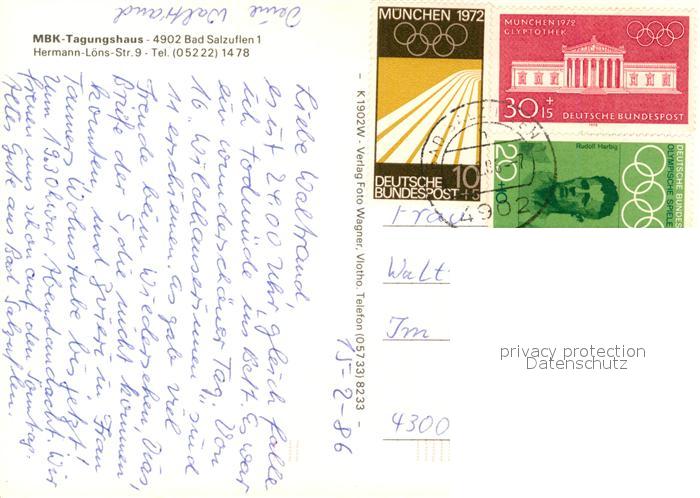 Deine Waltraud
MBK-Tagungshaus - 4902 Bad Salzuflen 1
Hermann-Löns-Str. 9 - Tel. (05222) 1478
Liebe Waltraud,
es ist 24.00 Uhr, gleich falle
ich todmüde ins Bett. Es war
ein wunderschöner Tag. Von
16 Wildhauserinnen sind
11 erschienen. Es gab viel
Freude beim Wiedersehen, Dias,
Briefe der 5, die nicht kommen
konnten, und zwar in Frau
Tauers Wohnstube bis jetzt!
Um 19.30 Uhr Abendandacht. Wir
freuen uns schon auf den Sonntag.
Alles Gute aus Bad Salzuflen.
- K1902W - Verlag Foto Wagner, Vlotho. Telefon (05733) 8233 -
15-2-86
MÜNCHEN 1972
10
+5
DEUTSCHE
BUNDESPOST
MÜNCHEN 1972
GLYPTOTHEK
30+15
DEUTSCHE BUNDESPOST
1970
Rudolf Harbig
20
DEUTSCHE BUNDES
OLYMPISCHE SPIELE
4902
Frau
Walt
Im
4300
privacy protection
Datenschutz